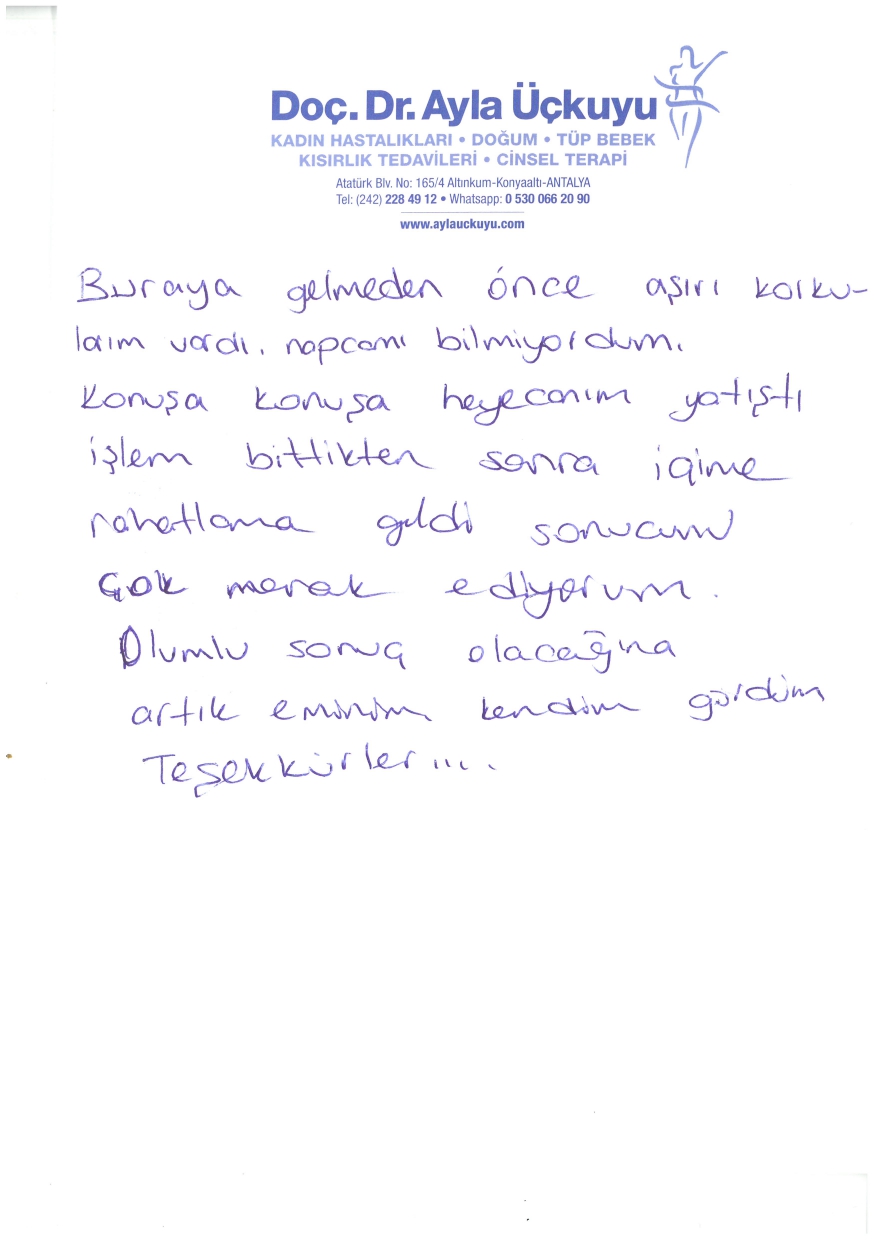 Doç. Dr. Ayla Üçkuyu
KADIN HASTALIKLARI • DOĞUM • TÜP BEBEK
KISIRLIK TEDAVİLERİ • CİNSEL TERAPİ
Atatürk Blv. No: 165/4 Altınkum-Konyaaltı-ANTALYA
Tel: (242) 228 49 12 • Whatsapp: 0 530 066 20 90
www.aylauckuyu.com
Buraya gelmeden önce aşırı korku-
larım vardı. napcamı bilmiyordum.
Konuşa konuşa heyecanım yatıştı
işlem bittikten sonra içime
rahatlama geldi sonucunu
Çok merak ediyorum.
Olumlu sonuç olacağına
artık eminim kendim gördüm
Teşekkürler....